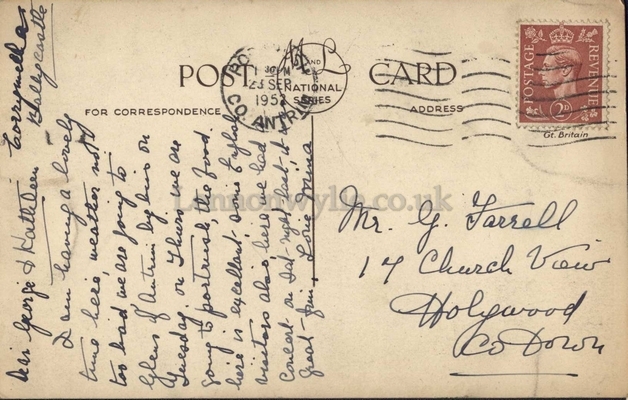 POST CARD
M AND L
NATIONAL
SERIES
FOR CORRESPONDENCE
ADDRESS
23 SEP
CO. ANTRIM
POSTAGE
REVENUE
2D
Gt. Britain
Corrymeela
Ballycastle
Dear George & Kathleen
I am having a lovely
time here, weather not
too bad we are going to
Glens of Antrim by bus on
Tuesday, on Thurs, we are
going to portrush, the food
here is excellent, some English
visitors also here, we had
concert on Sat, night last, it
great fun, Love
Mr. G. Farrell
17 Church View
Holywood
Co Down
Lennonwylie.co.uk